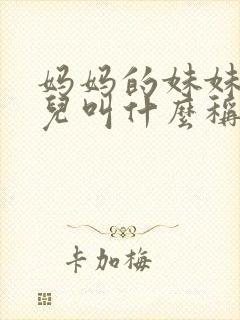 妈妈的妹妹
兒叫什麼稱
卡加梅